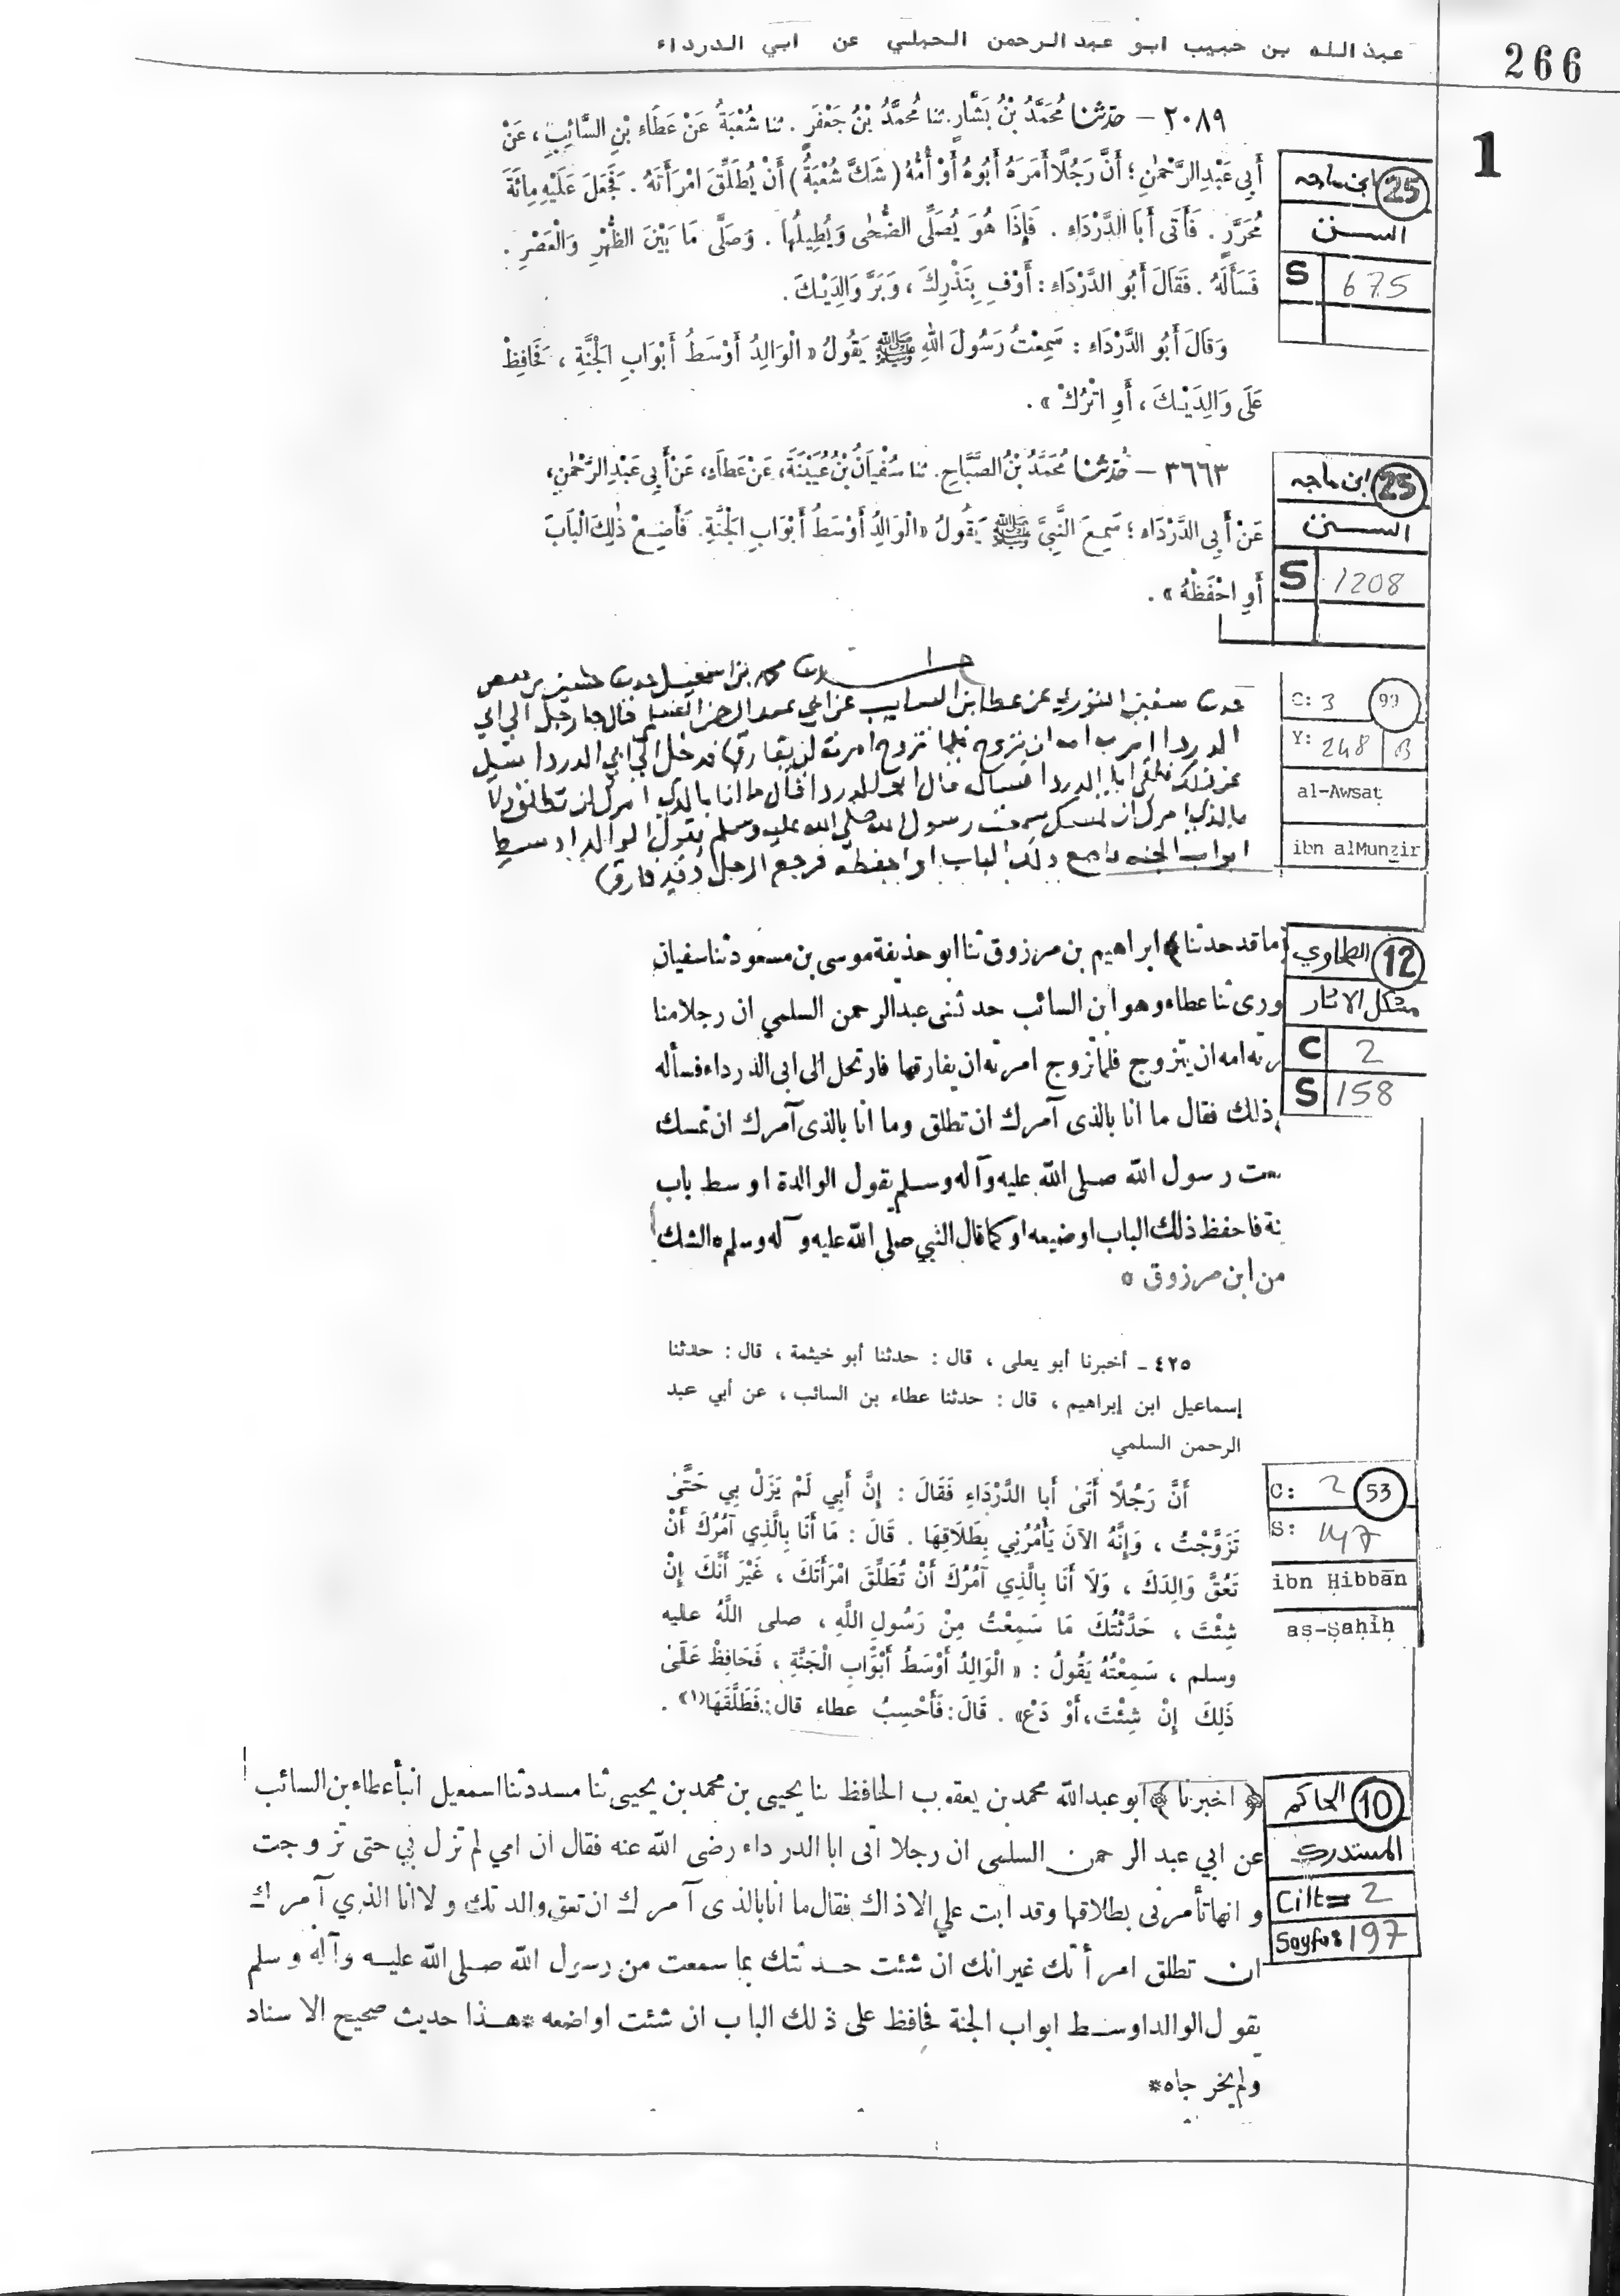 عبدالله بن حبيب ابو عبدالرحمن الحبلي عن ابي الدرداء
266
1
٢٠٨٩ – حَدَّثَنَا مُحَمَّدُ بْنُ بَشَّارٍ. ثنا مُحَمَّدُ بْنُ جَعْفَرٍ . ثنا شُعْبَةُ عَنْ عَطَاءِ بْنِ السَّائِبِ، عَنْ
أَبِي عَبْدِ الرَّحْمٰنِ؛ أَنَّ رَجُلًا أَمَرَهُ أَبُوهُ أَوْ أُمُّهُ (شَكَّ شُعْبَةُ) أَنْ يُطَلِّقَ امْرَأَتَهُ . فَجَعَلَ عَلَيْهِ مِائَةَ
مُحَرَّرٍ . فَأَتَى أَبَا الدَّرْدَاءِ . فَإِذَا هُوَ يُصَلِّى الضُّحٰى وَيُطِيلُهَا . وَصَلَّى مَا بَيْنَ الظُّهْرِ وَالْعَصْرِ .
فَسَأَلَهُ . فَقَالَ أَبُو الدَّرْدَاءِ : أَوْفِ بِنَذْرِكَ ، وَبَرَّ وَالِدَيْكَ .
وَقَالَ أَبُو الدَّرْدَاءِ : سَمِعْتُ رَسُولَ اللهِ ﷺ يَقُولُ « الْوَالِدُ أَوْسَطُ أَبْوَابِ الْجَنَّةِ ، فَحَافِظْ
عَلَى وَالِدَيْكَ ، أَوِ اتْرُكْ » .
ابن ماجه 25
السنن
S 675
٣٦٦٣ – حَدَّثَنَا مُحَمَّدُ بْنُ الصَّبَّاحِ. ثنا سُفْيَانُ بْنُ عُيَيْنَةَ، عَنْ عَطَاءٍ، عَنْ أَبِي عَبْدِ الرَّحْمٰنِ،
عَنْ أَبِي الدَّرْدَاءِ ؛ سَمِعَ النَّبِيَّ ﷺ يَقُولُ « الْوَالِدُ أَوْسَطُ أَبْوَابِ الْجَنَّةِ. فَأَضِعْ ذٰلِكَ الْبَابَ
أَوِ احْفَظْهُ » .
ابن ماجه 25
السنن
S 1208
محمد بن اسمعيل حدثنا حسين بن حفص
حدثنا سفين الثوري عن عطا بن السايب عن ابي عبد الرحمن السلمي قال جا رجل الي ابي
الدردا امرت امه ان يتزوج فلما تزوج امرته ان يفارق فدخل الي ابي الدردا
عن ذلك ابا الدردا فسأله قال ابو الدردا قال ما انا بالذي امرك ان تطلق ولا
بالذي امرك ان تمسك سمعت رسول الله صلى الله عليه وسلم يقول الوالد اوسط
ابواب الجنه فاضع ذلك الباب او احفظه فرجع الرجل وقد فارق
C: 3 99
Y: 248 B
al-Awsaṭ
ibn alMunẕir
ما قد حدثنا﴾ ابراهيم بن مرزوق ثنا ابو حذيفة موسى بن مسعود ثنا سفيان
ورى ثنا عطاء وهو ابن السائب حدثنى عبدالرحمن السلمي ان رجلا منا
رته امه ان يتزوج فلما تزوج امرته ان يفارقها فارتحل الى ابى الدرداء فسأله
ذلك فقال ما انا بالذى آمرك ان تطلق وما انا بالذى آمرك ان تمسك
معت رسول الله صلى الله عليه وآله وسلم يقول الوالدة اوسط باب
نة فاحفظ ذلك الباب او ضيعه او كما قال النبي صلى الله عليه وآله وسلم * الشك
من ابن مرزوق *
الطحاوي 12
مشكل الاثار
C 2
S 158
٤٢٥ ـ أخبرنا أبو يعلى ، قال : حدثنا أبو خيثمة ، قال : حدثنا
إسماعيل ابن إبراهيم ، قال : حدثنا عطاء بن السائب ، عن أبي عبد
الرحمن السلمي
أَنَّ رَجُلًا أَتَىٰ أَبا الدَّرْدَاءِ فَقَالَ : إِنَّ أَبِي لَمْ يَزَلْ بِي حَتَّىٰ
تَزَوَّجْتُ ، وَإِنَّهُ الآنَ يَأْمُرُنِي بِطَلَاقِهَا . قَالَ : مَا أَنَا بِالَّذِي آمُرُكَ أَنْ
تَعُقَّ وَالِدَكَ ، وَلَا أَنَا بِالَّذِي آمُرُكَ أَنْ تُطَلِّقَ امْرَأَتَكَ ، غَيْرَ أَنَّكَ إِنْ
شِئْتَ ، حَدَّثْتُكَ مَا سَمِعْتُ مِنْ رَسُولِ اللَّهِ ، صلى اللَّهُ عليه
وسلم ، سَمِعْتُهُ يَقُولُ : « الْوَالِدُ أَوْسَطُ أَبْوَابِ الْجَنَّةِ ، فَحَافِظْ عَلَىٰ
ذَلِكَ إِنْ شِئْتَ، أَوْ دَعْ» . قَالَ: فَأَحْسِبُ عطاء قال: فَطَلَّقَهَا(١) .
C: 2 53
S: 147
ibn Ḥibbān
aṣ-Ṣaḥīḥ
﴿ اخبرنا ﴾ ابو عبدالله محمد بن يعقوب الحافظ ثنا يحيى بن محمد بن يحيى ثنا مسدد ثنا اسمعيل انبأ عطاء بن السائب
عن ابي عبد الرحمن السلمى ان رجلا اتى ابا الدرداء رضى الله عنه فقال ان امي لم تزل بي حتى تزوجت
و انها تأمرنى بطلاقها وقد ابت علي الا ذاك فقال ما انا بالذى آمرك ان تعق والدتك ولا انا الذي آمرك
ان تطلق امرأتك غير انك ان شئت حدثتك بما سمعت من رسول الله صلى الله عليه وآله وسلم
يقول الوالد اوسط ابواب الجنة فحافظ على ذلك الباب ان شئت او اضعه * هذا حديث صحيح الاسناد
ولم يخرجاه*
الحاكم 10
المستدرك
Cilt= 2
Sayfa: 197